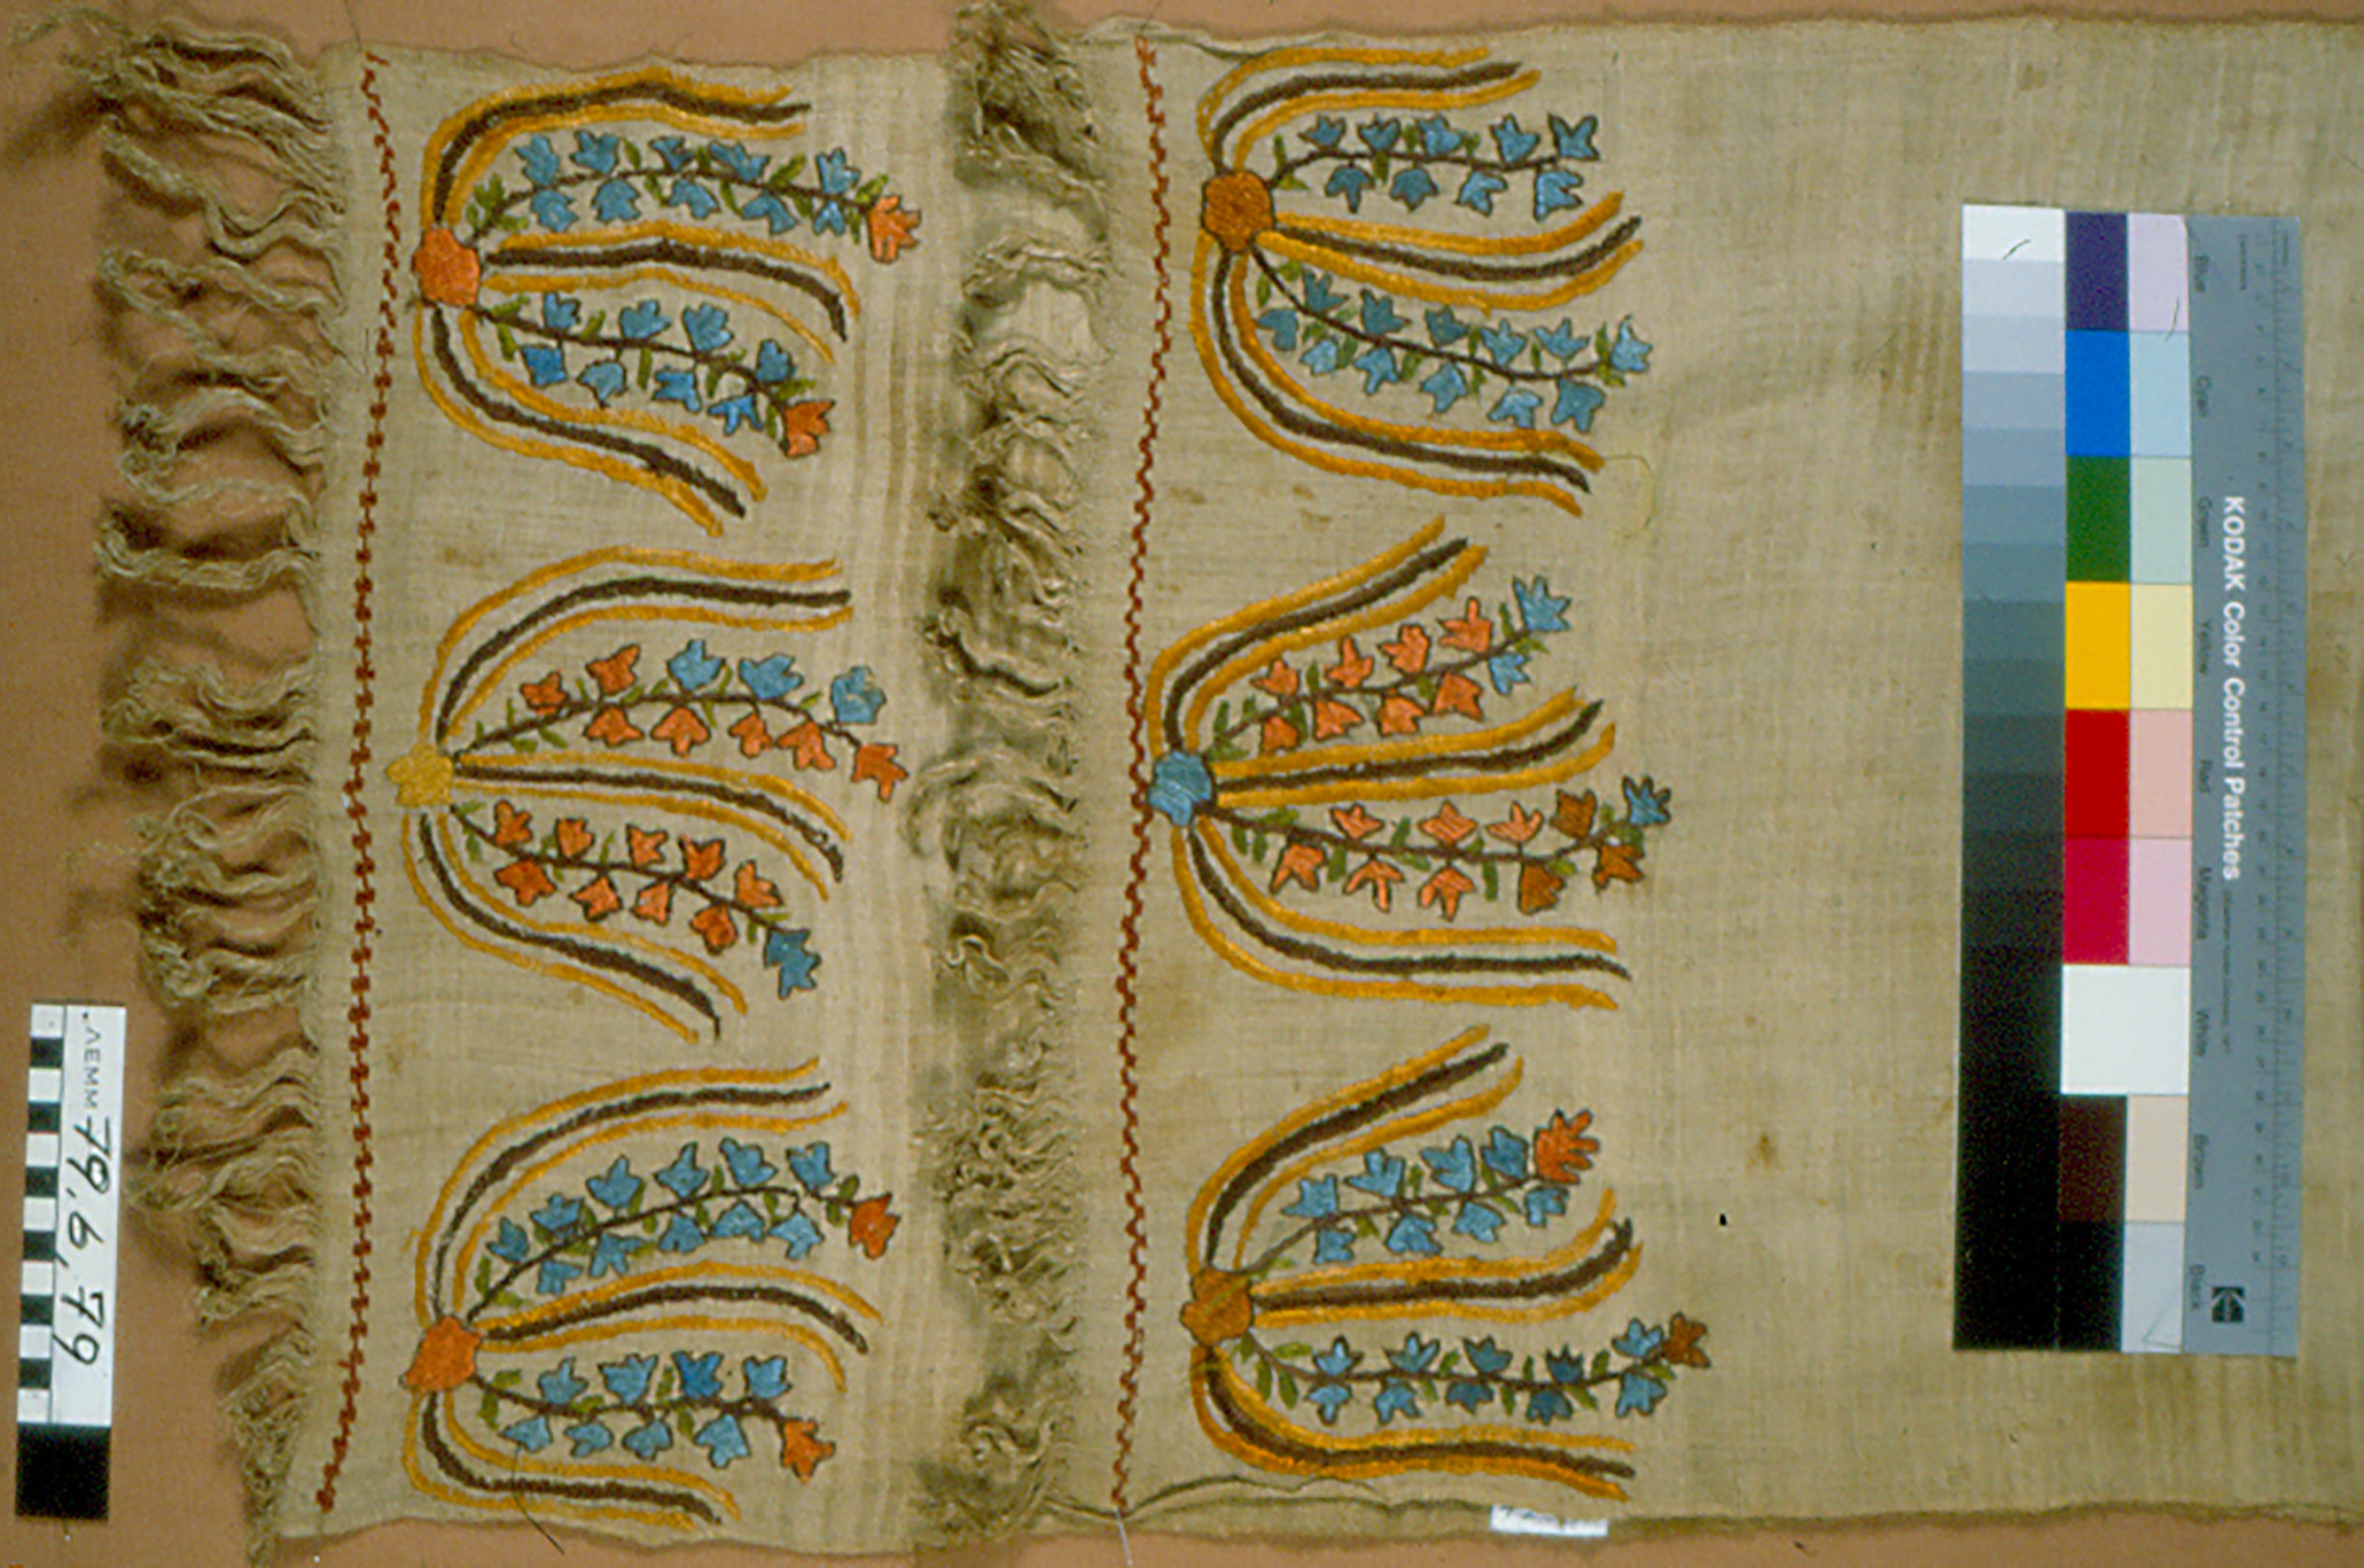 ΛΕΜΜ 79.6.79
KODAK Color Control Patches
Blue
Cyan
Green
Yellow
Red
Magenta
White
Brown
Black